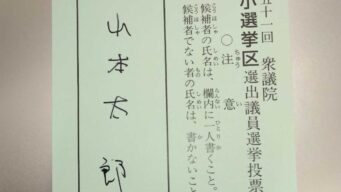 五十一回 衆議院
小選挙区選出議員選挙投票
○注意
候補者の氏名は、欄内に一人書くこと。
候補者でない者の氏名は、書かないこと
山本太郎